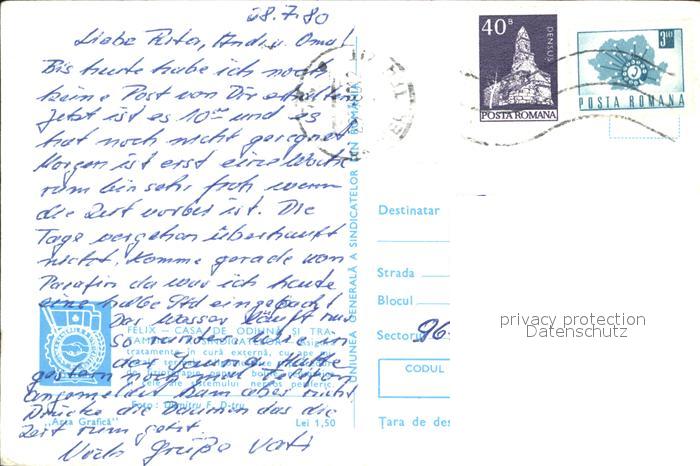 28.7.80
Liebe Rita, Andi u. Oma!
Bis heute habe ich noch
keine Post von Dir erhalten
Jetzt ist es 10 Uhr und es
hat noch nicht geregnet
Morgen ist erst eine Woche
rum bin sehr froh wenn
die Zeit vorbei ist. Die
Tage vergehen überhaupt
nicht. Komme gerade von
Parafin da war ich heute
eine halbe Std eingepackt
Das Wasser läuft nur
so runter wie in
der Sauna. Hatte
gestern noch
angemeldet kam aber nicht
Drücke die Daumen das die
Zeit rum geht.
Viele Grüße Vati
FELIX — CASA DE ODIHNĂ ȘI TRA-
TAMENT A SINDICATELOR
tratamente în cură externă, cu ape
sistemului nervos periferic.
Foto: Dumitru F. D-tru
"Arta Grafică" Lei 1,50
UNIUNEA GENERALĂ A SINDICATELOR DIN ROMÂNIA
40 B
DENSUS
POSTA ROMANA
3,60
POSTA ROMANA
Destinatar
Strada
Blocul
Sectorul 96
CODUL
Țara de des
privacy protection
Datenschutz